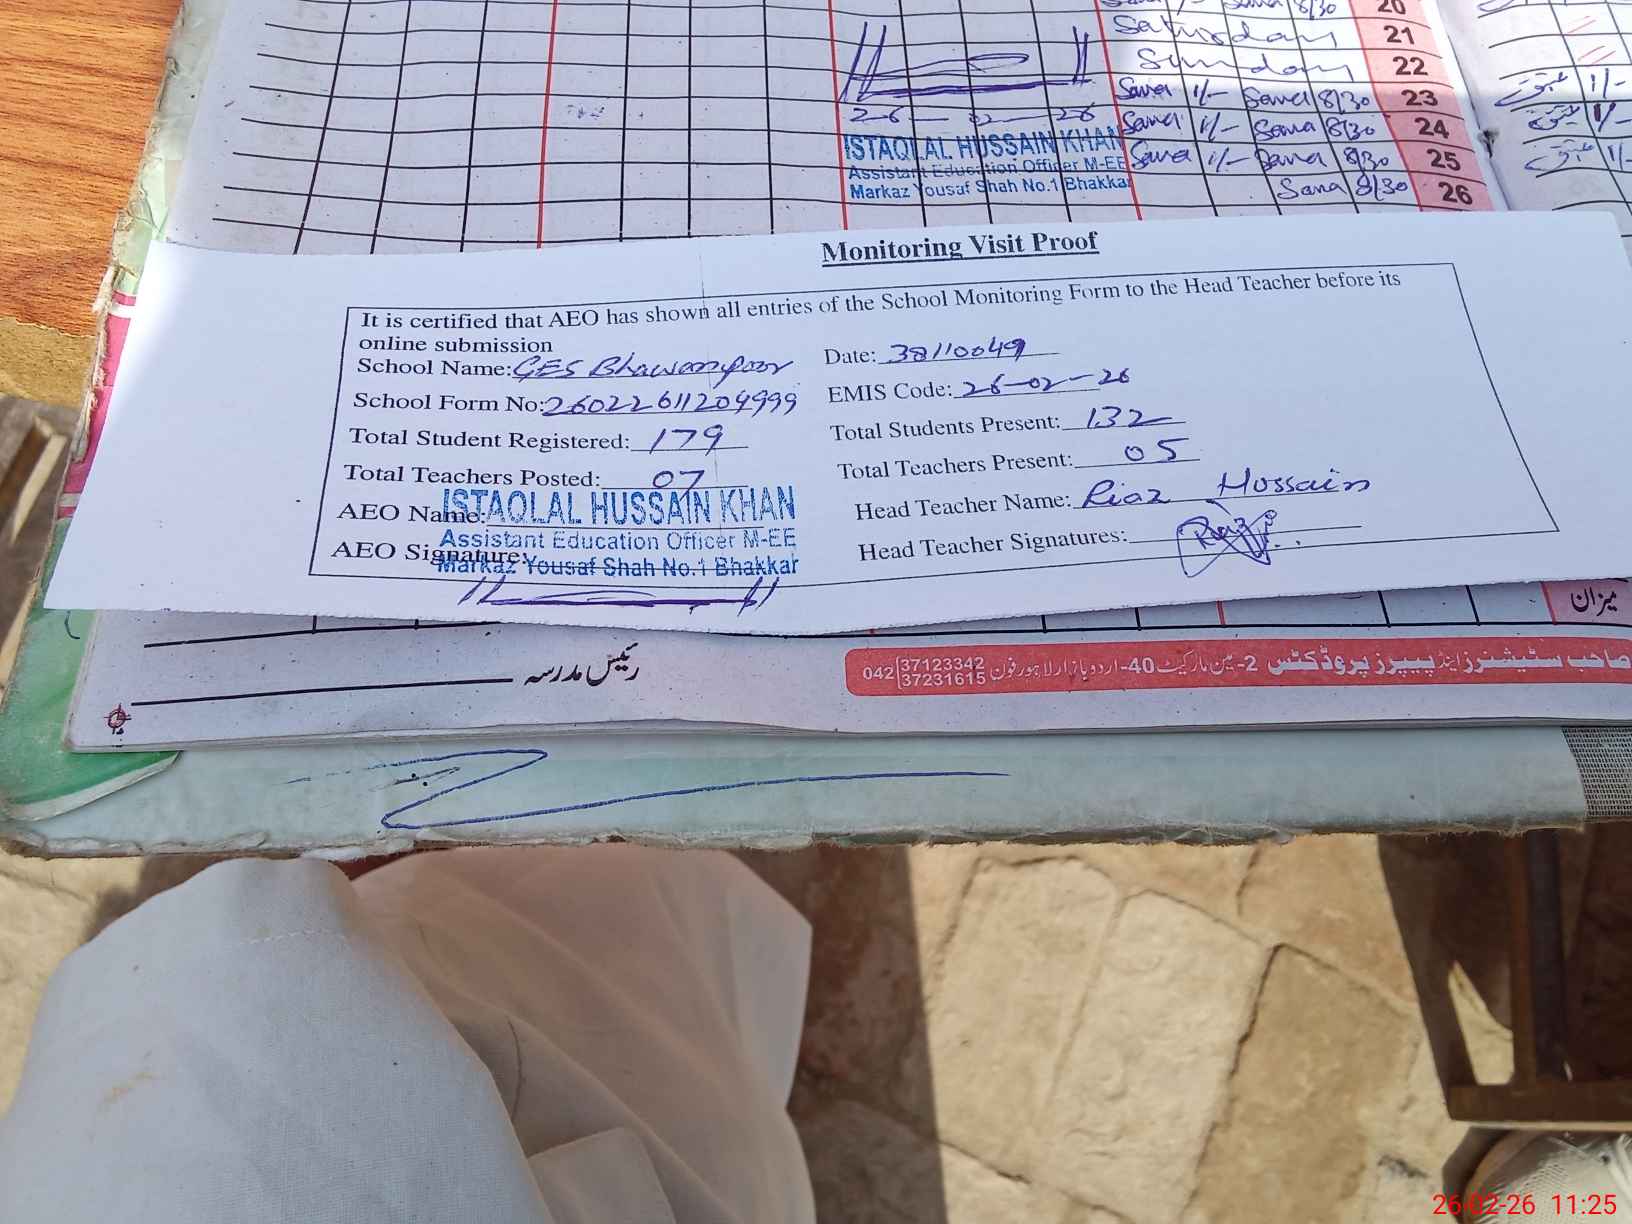 20
Saturday 21
Sunday 22
Sana 1/- Sana 8/30 23
26-02-26
Sana 1/- Sana 8/30 24
ISTAQLAL HUSSAIN KHAN
Sana 1/- Sana 8/30 25
Assistant Education Officer M-EE
Markaz Yousaf Shah No.1 Bhakkar
Sana 8/30 26
Monitoring Visit Proof
It is certified that AEO has shown all entries of the School Monitoring Form to the Head Teacher before its
online submission
School Name: GES Bhawanpoor Date: 38110049
School Form No: 26022611204999 EMIS Code: 26-02-26
Total Student Registered: 179 Total Students Present: 132
Total Teachers Posted: 07 Total Teachers Present: 05
AEO Name: Head Teacher Name: Riaz Hussain
ISTAQLAL HUSSAIN KHAN
Assistant Education Officer M-EE
AEO Signature: Head Teacher Signatures:
Markaz Yousaf Shah No.1 Bhakkar
میزان
رئیس مدرسہ
صاحب سٹیشنرز اینڈ پیپرز پروڈکٹس 2-مین مارکیٹ 40-اردو بازار لاہور فون 042 37123342
37231615
26-02-26 11:25